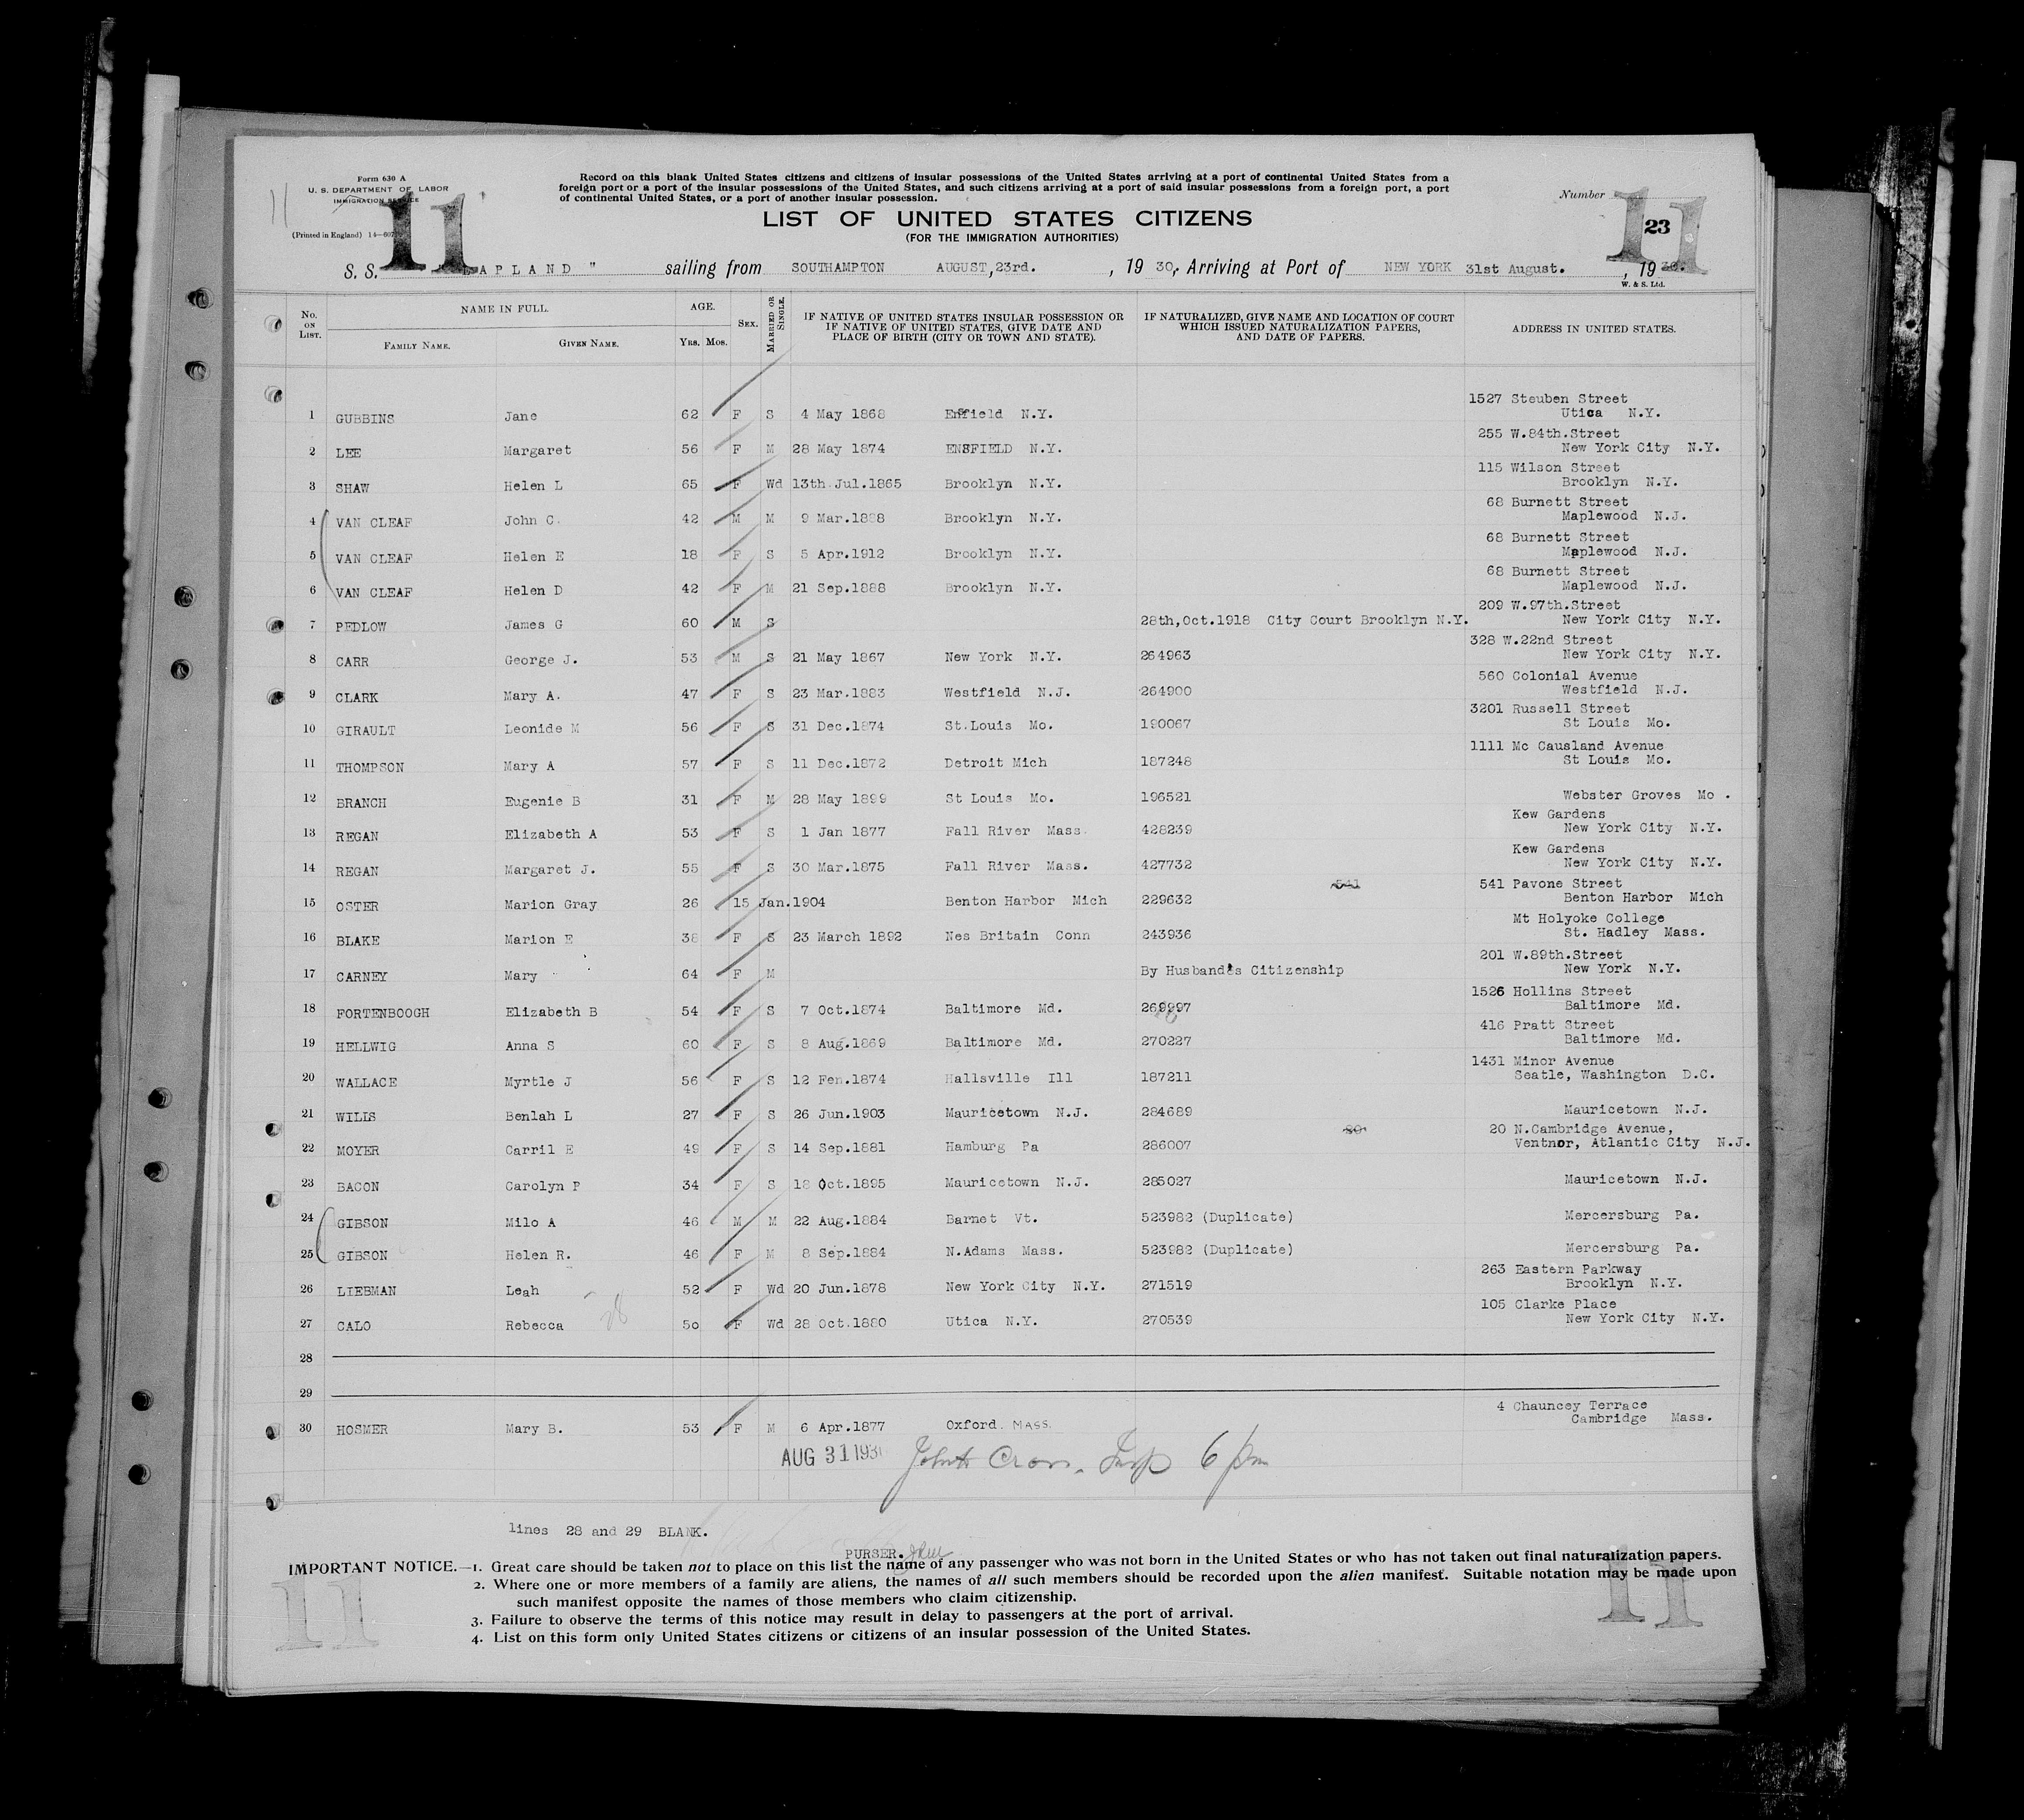 Form 630 A
U. S. DEPARTMENT OF LABOR
IMMIGRATION SERVICE
(Printed in England) 14—
11
11
Record on this blank United States citizens and citizens of insular possessions of the United States arriving at a port of continental United States from a
foreign port or a port of the insular possessions of the United States, and such citizens arriving at a port of said insular possessions from a foreign port, a port
of continental United States, or a port of another insular possession.
LIST OF UNITED STATES CITIZENS
(FOR THE IMMIGRATION AUTHORITIES)
Number
11
23
S. S. LAPLAND " sailing from SOUTHAMPTON AUGUST,23rd. , 19 30, Arriving at Port of NEW YORK 31st August. , 19 30.
W. & S. Ltd.
No. ON LIST. NAME IN FULL. FAMILY NAME. GIVEN NAME. AGE. YRS. MOS. SEX. MARRIED OR SINGLE. IF NATIVE OF UNITED STATES INSULAR POSSESSION OR IF NATIVE OF UNITED STATES, GIVE DATE AND PLACE OF BIRTH (CITY OR TOWN AND STATE). IF NATURALIZED, GIVE NAME AND LOCATION OF COURT WHICH ISSUED NATURALIZATION PAPERS, AND DATE OF PAPERS. ADDRESS IN UNITED STATES.
1527 Steuben Street
1 GUBBINS Jane 62 F S 4 May 1868 Enfield N.Y. Utica N.Y.
255 W.84th.Street
2 LEE Margaret 56 F M 28 May 1874 ENSFIELD N.Y. New York City N.Y.
115 Wilson Street
3 SHAW Helen L 65 F Wd 13th Jul.1865 Brooklyn N.Y. Brooklyn N.Y.
68 Burnett Street
4 VAN CLEAF John C. 42 M M 9 Mar.1888 Brooklyn N.Y. Maplewood N.J.
68 Burnett Street
5 VAN CLEAF Helen E 18 F S 5 Apr.1912 Brooklyn N.Y. Maplewood N.J.
68 Burnett Street
6 VAN CLEAF Helen D 42 F M 21 Sep.1888 Brooklyn N.Y. Maplewood N.J.
209 W.97th.Street
7 PEDLOW James G 60 M S 28th,Oct.1918 City Court Brooklyn N.Y. New York City N.Y.
328 W.22nd Street
8 CARR George J. 53 M S 21 May 1867 New York N.Y. 264963 New York City N.Y.
560 Colonial Avenue
9 CLARK Mary A. 47 F S 23 Mar.1883 Westfield N.J. 264900 Westfield N.J.
3201 Russell Street
10 GIRAULT Leonide M 56 F S 31 Dec.1874 St.Louis Mo. 190067 St Louis Mo.
1111 Mc Causland Avenue
11 THOMPSON Mary A 57 F S 11 Dec.1872 Detroit Mich 187248 St Louis Mo.
12 BRANCH Eugenie B 31 F M 28 May 1899 St Louis Mo. 196521 Webster Groves Mo .
Kew Gardens
13 REGAN Elizabeth A 53 F S 1 Jan 1877 Fall River Mass. 428239 New York City N.Y.
Kew Gardens
14 REGAN Margaret J. 55 F S 30 Mar.1875 Fall River Mass. 427732 New York City N.Y.
541 541 Pavone Street
15 OSTER Marion Gray 26 15 Jan.1904 Benton Harbor Mich 229632 Benton Harbor Mich
Mt Holyoke College
16 BLAKE Marion E 38 F S 23 March 1892 Nes Britain Conn 243936 St. Hadley Mass.
201 W.89th.Street
17 CARNEY Mary 64 F M By Husband's Citizenship New York N.Y.
1526 Hollins Street
18 FORTENBOOGH Elizabeth B 54 F S 7 Oct.1874 Baltimore Md. Baltimore Md.
416 Pratt Street
19 HELLWIG Anna S 60 F S 8 Aug.1869 Baltimore Md. 270227 Baltimore Md.
1431 Minor Avenue
20 WALLACE Myrtle J 56 F S 12 Fen.1874 Hallsville Ill 187211 Seatle, Washington D.C.
21 WILLS Benlah L 27 F S 26 Jun.1903 Mauricetown N.J. 284689 Mauricetown N.J.
20 N.Cambridge Avenue,
22 MOYER Carril E 49 F S 14 Sep.1881 Hamburg Pa 286007 Ventnor, Atlantic City N.J.
23 BACON Carolyn P 34 F S 18 Oct.1895 Mauricetown N.J. 285027 Mauricetown N.J.
24 GIBSON Milo A 46 M M 22 Aug.1884 Barnet Vt. 523982 (Duplicate) Mercersburg Pa.
25 GIBSON Helen R. 46 F M 8 Sep.1884 N.Adams Mass. 523982 (Duplicate) Mercersburg Pa.
263 Eastern Parkway
26 LIEBMAN Leah 52 F Wd 20 Jun.1878 New York City N.Y. 271519 Brooklyn N.Y.
105 Clarke Place
27 CALO Rebecca 50 F Wd 28 Oct.1880 Utica N.Y. 270539 New York City N.Y.
28
29
4 Chauncey Terrace
30 HOSMER Mary B. 53 F M 6 Apr.1877 Oxford. MASS. Cambridge Mass.
AUG 31 1930 Cross. Insp 6 pm
lines 28 and 29 BLANK.
PURSER.
IMPORTANT NOTICE.—1. Great care should be taken not to place on this list the name of any passenger who was not born in the United States or who has not taken out final naturalization papers.
2. Where one or more members of a family are aliens, the names of all such members should be recorded upon the alien manifest. Suitable notation may be made upon
such manifest opposite the names of those members who claim citizenship.
3. Failure to observe the terms of this notice may result in delay to passengers at the port of arrival.
4. List on this form only United States citizens or citizens of an insular possession of the United States.
11
11